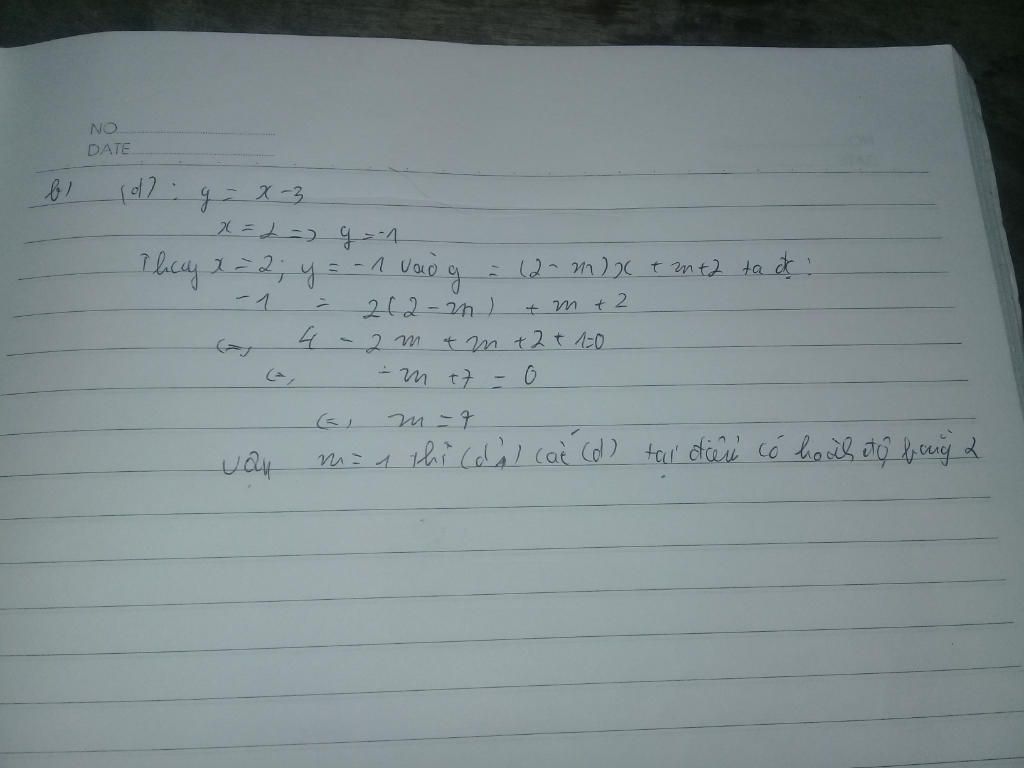 NO
DATE
b) (d): y = x - 3
x = 2 => y = -1
Thay x = 2; y = -1 vào y = (2 - m)x + m + 2 ta đc:
-1 = 2(2 - m) + m + 2
<=> 4 - 2m + m + 2 + 1 = 0
<=> -m + 7 = 0
<=> m = 7
Vậy m = 1 thì (d1) cắt (d) tại điểm có hoành độ bằng 2